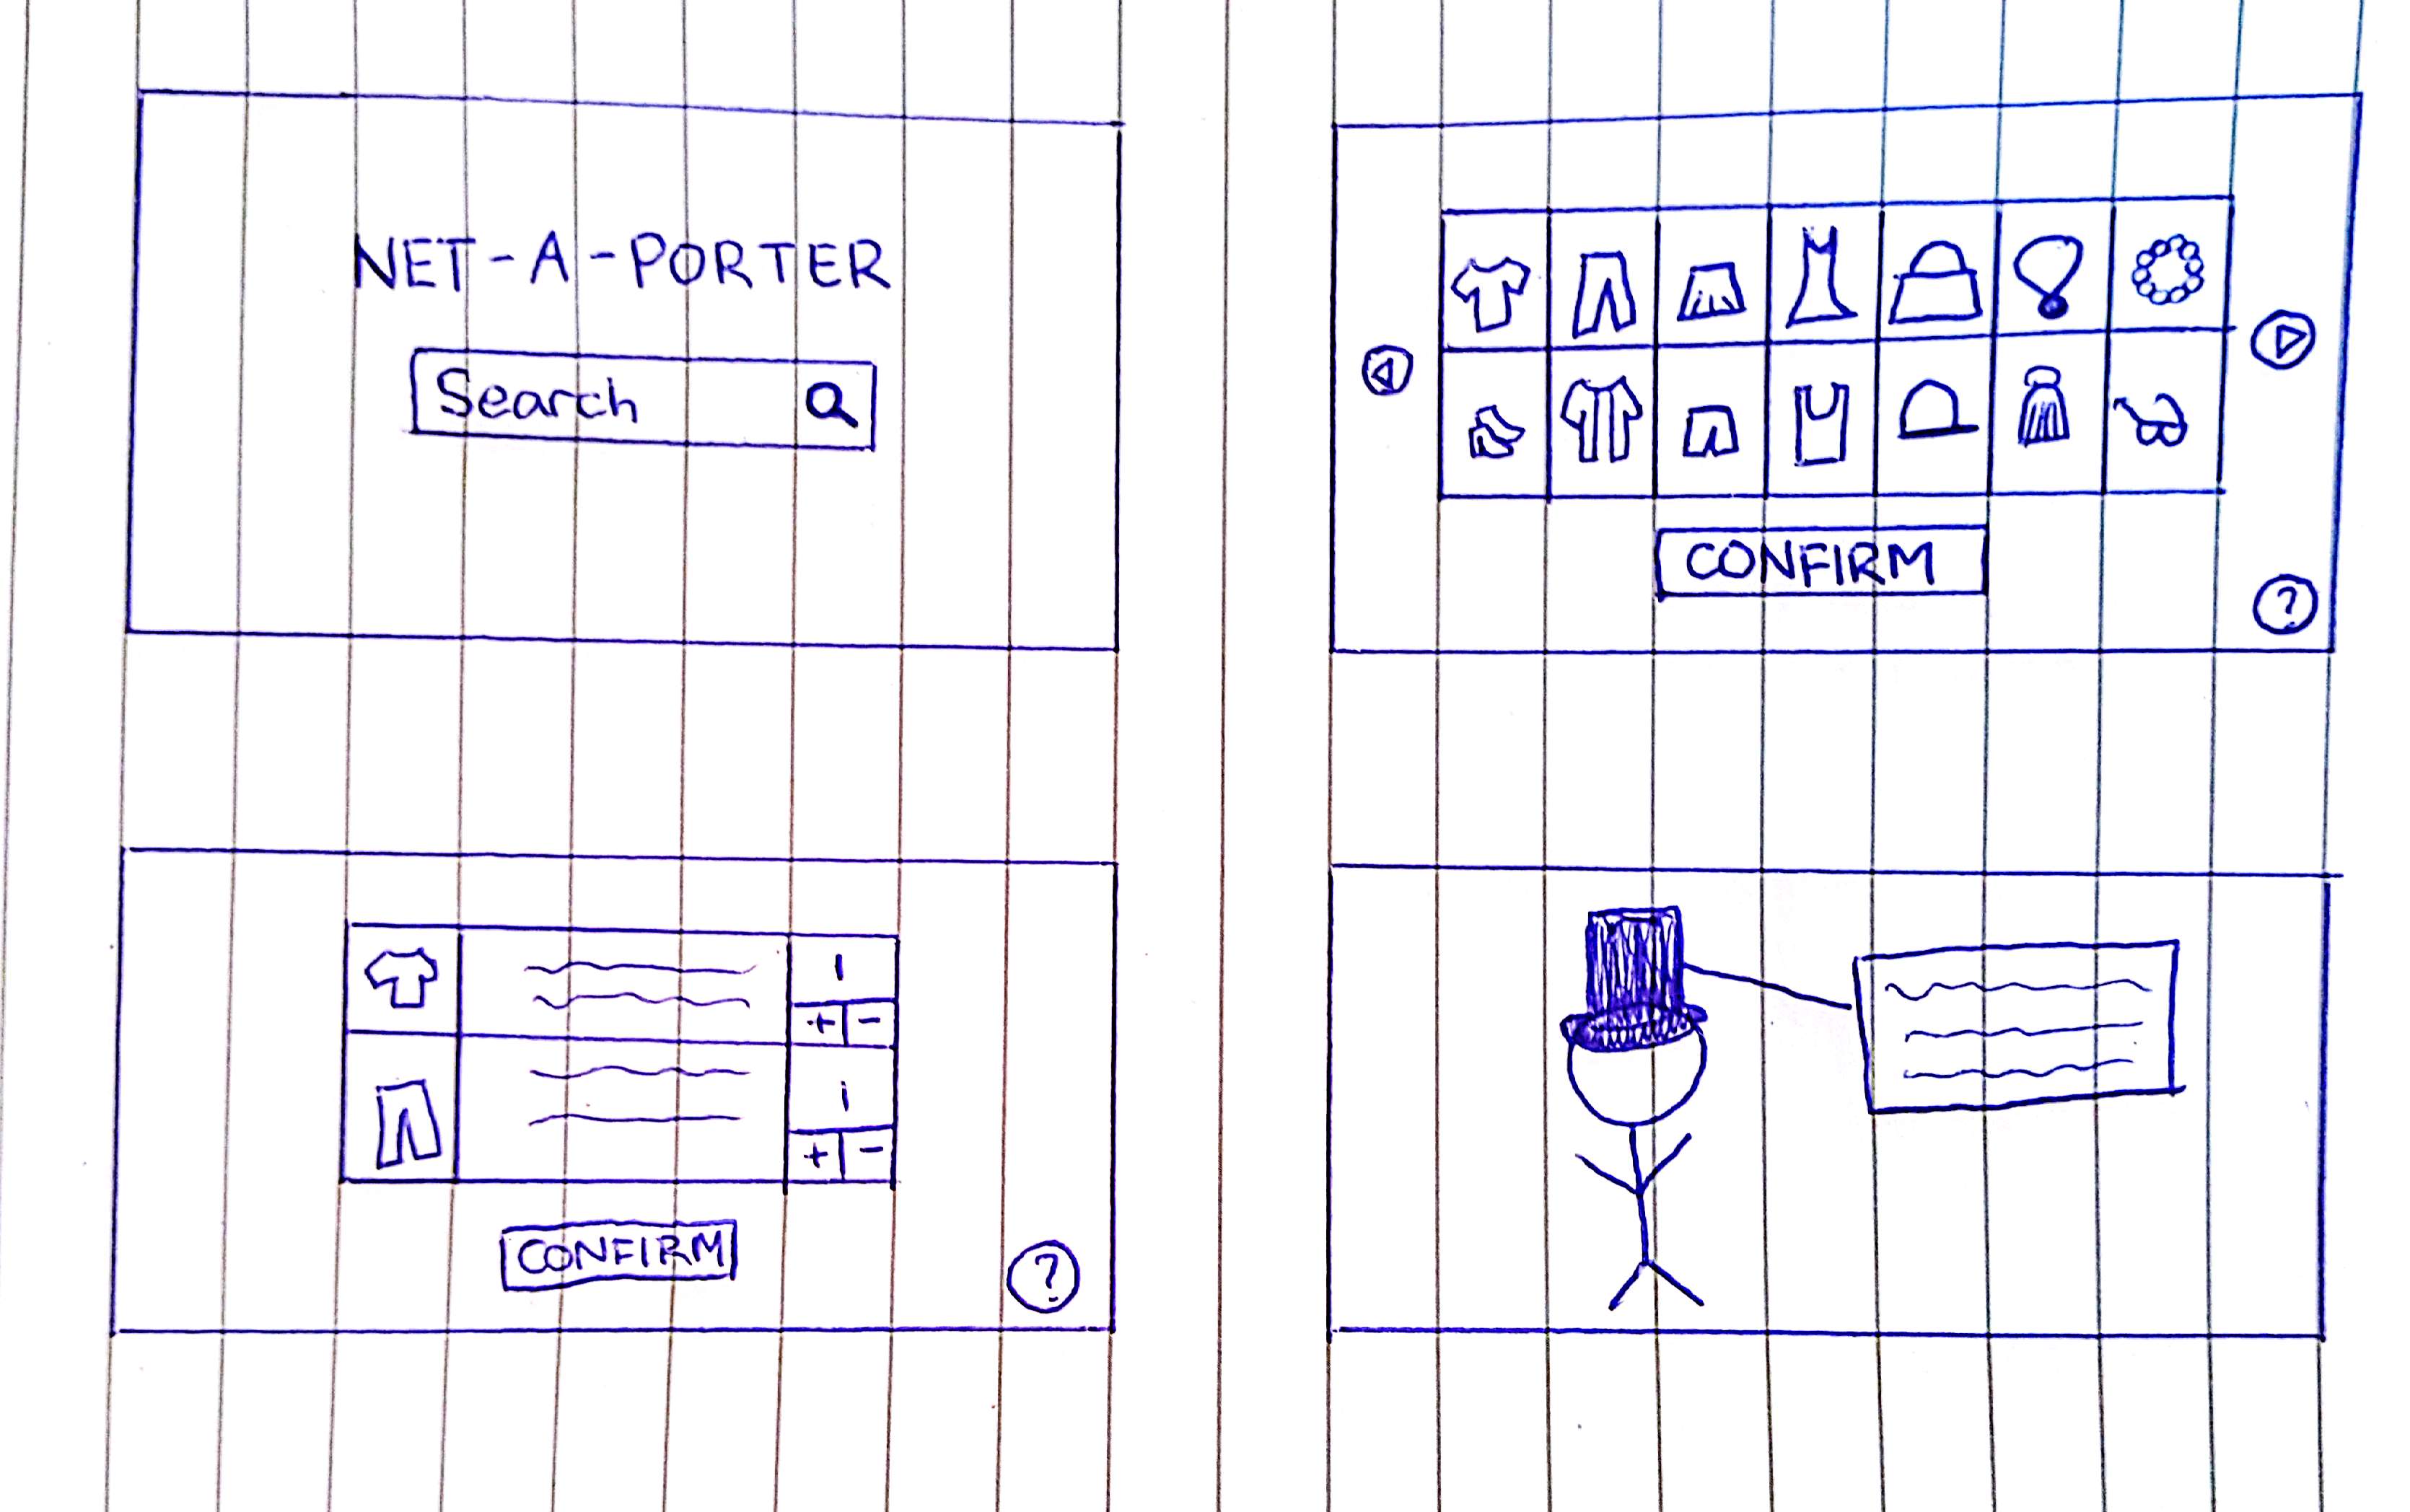 NET-A-PORTER
Search
CONFIRM
?
1
+ -
1
+ -
CONFIRM
?